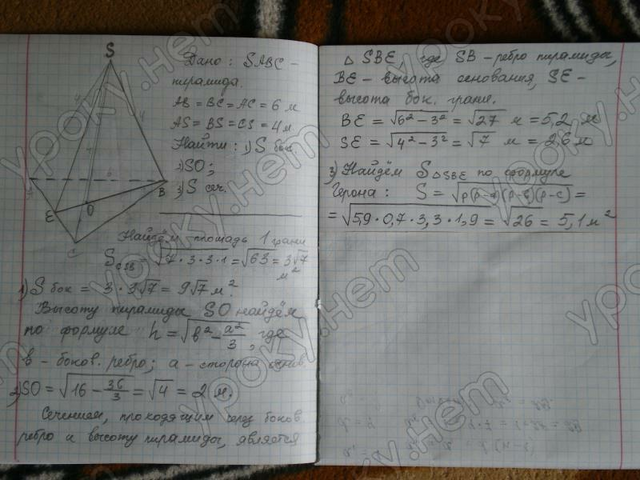 S
E
O
B
C
Дано: SABC –
пирамида.
AB = BC = AC = 6 м
AS = BS = CS = 4 м
Найти: 1) S бок
2) SO;
3) S сеч.
Найдём площадь 1 грани
S CSB = √7·3·3·1 = √63 = 3√7 м²
1) S бок = 3·3√7 = 9√7 м².
Высоту пирамиды SO найдём
по формуле h = √в² - a²/3, где
в - боков. ребро; а - сторона
2) SO = √16 - 36/3 = √4 = 2 м.
Сечением, проходящим через боков.
ребро и высоту пирамиды, является
△ SBE, где SB - ребро пирамиды,
BE - высота основания, SE -
высота бок. грани.
BE = √6² - 3² = √27 м = 5,2 м
SE = √4² - 3² = √7 м = 2,6 м
3) Найдём S△SBE по формуле
Герона: S = √p(p-a)(p-b)(p-c) =
= √5,9·0,7·3,3·1,9 = √26 = 5,1 м²
уроки.нет